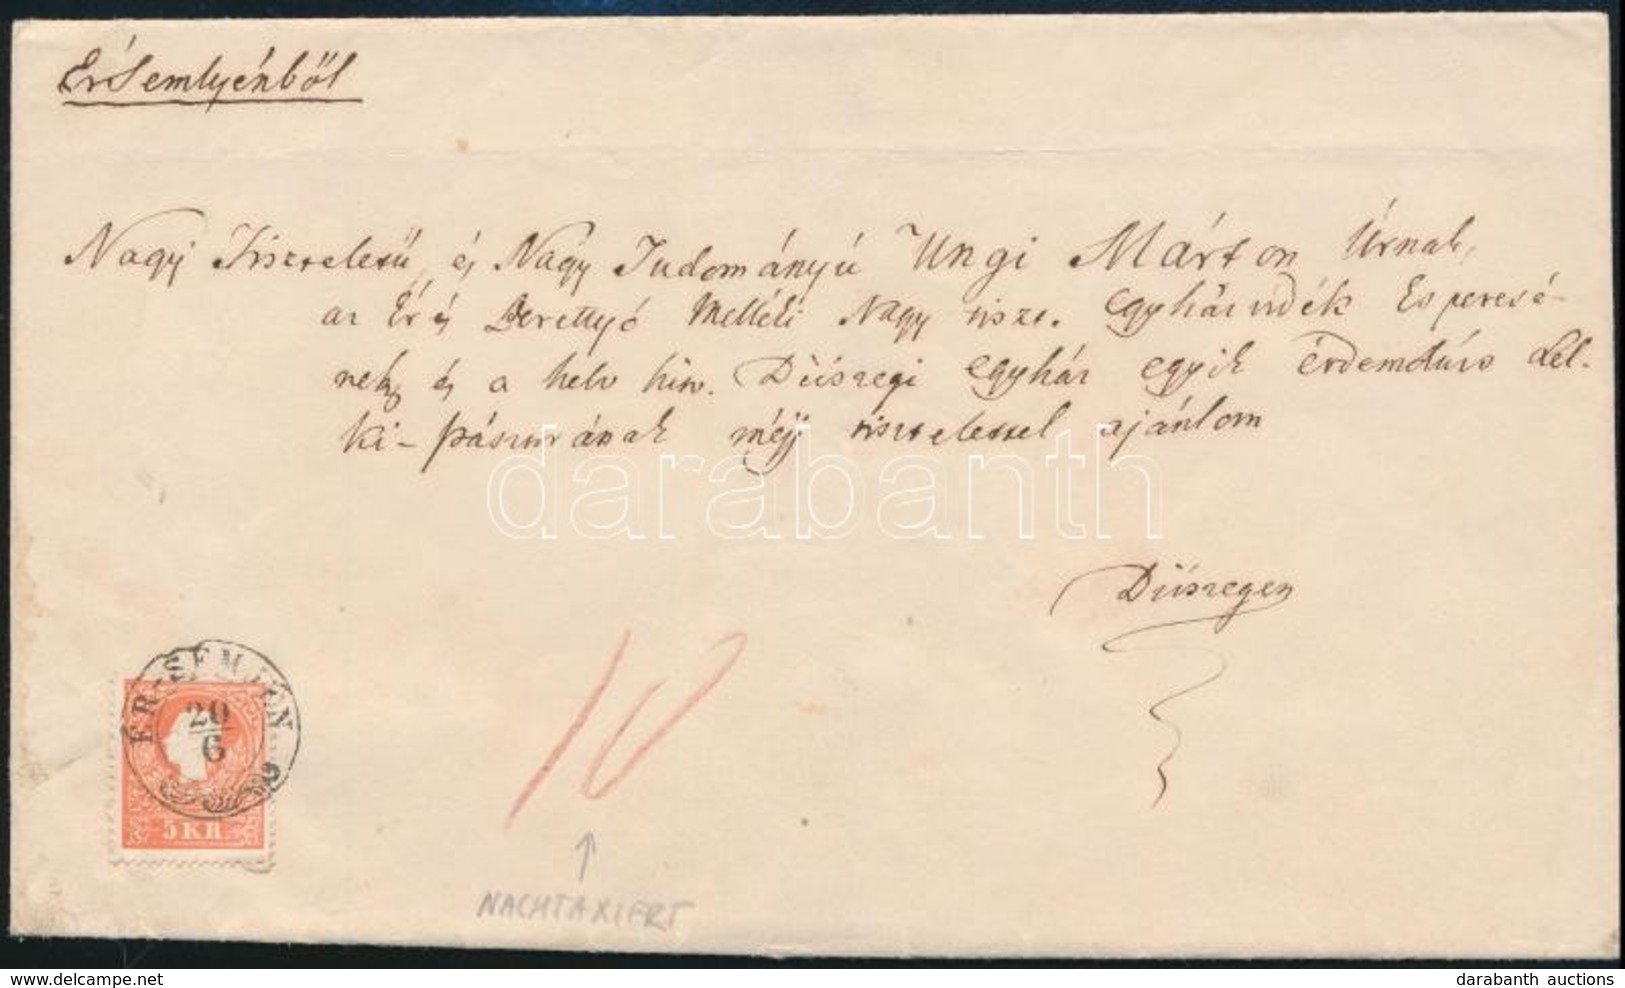 ÉrSemlyénből
Nagy Tiszteletű, és Nagy Tudományú Ungi Márton Úrnak,
az Ér és Berettyó Melléki Nagy tiszt. Egyházvidék Esperesé-
nek, és a helv hitv. Diószegi egyház egyik érdemdús Lel-
ki-pásztorának mély tisztelettel ajánlom
darabanth
Diószegen
ÉR-SEMJÉN
20
6
5 KR.
10
NACHTAXIERT
delcampe.net
darabanth auctions